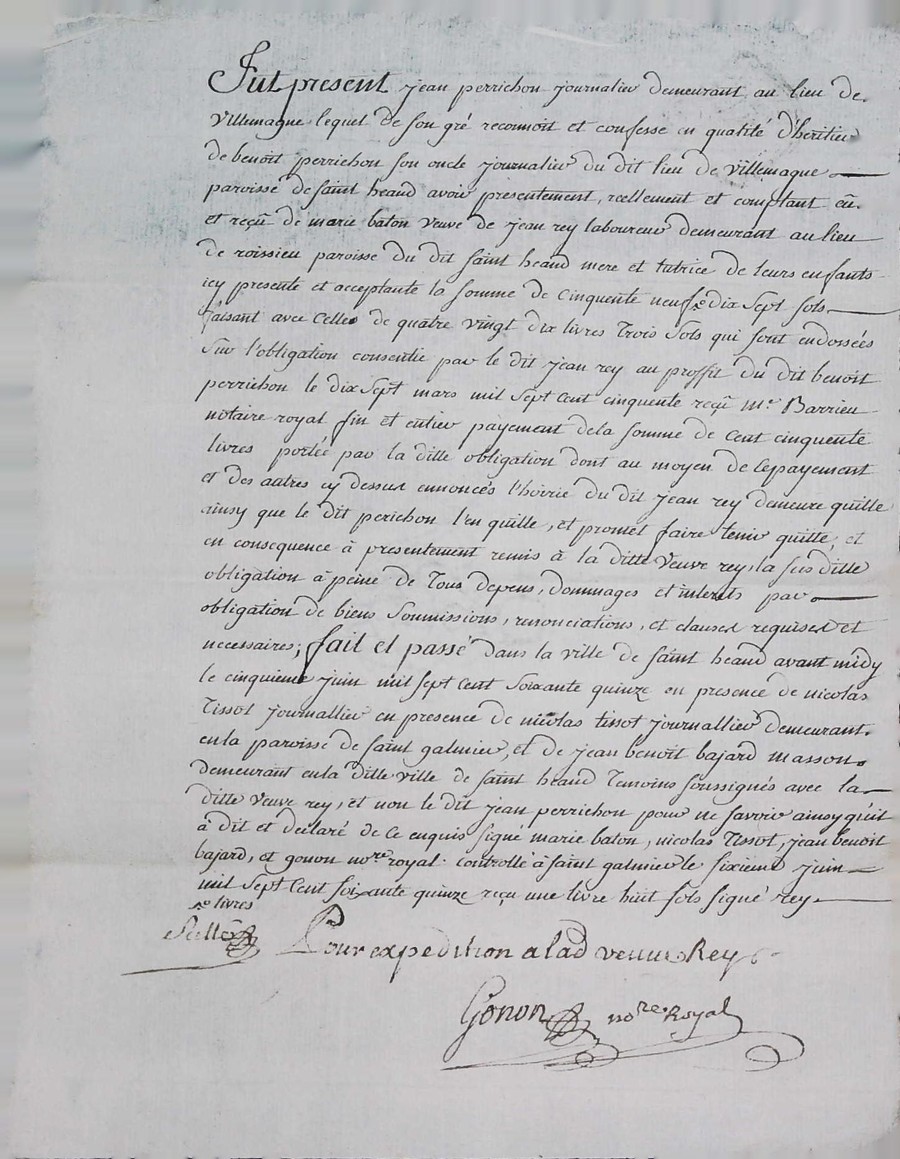 Fut present jean perrichon journalier demeurant au lieu de
villemagne lequel de son gré reconnoit et confesse en qualité d'heritier
de benoit perrichon son oncle journalier du dit lieu de villemagne
paroisse de saint heand avoir presentement, reellement et comptant eu
et reçu de marie baton veuve de jean rey laboureur demeurant au lieu
de roissieu paroisse du dit saint heand mere et tutrice de leurs enfants
icy presente et acceptante la somme de cinquente neuf dix sept sols
faisant avec celles de quatre vingt dix livres trois sols qui sont endossées
sur l'obligation consentie par le dit jean rey au proffit du dit benoit
perrichon le dix sept mars mil sept cent cinquente reçu me Barrieu
notaire royal fin et entier payement dela somme de cent cinquente
livres portée par la ditte obligation dont au moyen de cepayement
et des autres cy dessus ennoncés l'hoirie du dit jean rey demeure quitte
ainsy que le dit perichon l'en quitte, et promet faire tenir quitte, et
en consequence à presentement remis à la ditte veuve rey, la sus ditte
obligation à peine de tous depens, dommages et interets par
obligation de biens soumissions, renonciations, et clauses requises et
necessaires; fait et passé dans la ville de saint heand avant midy
le cinquieme juin mil sept cent soixante quinze en presence de nicolas
tissot journallier en presence de nicolas tissot journallier demeurant
en la paroisse de saint galmier, et de jean benoit bajard masson
demeurant en la ditte ville de saint heand temoins soussignés avec la
ditte veuve rey, et non le dit jean perrichon pour ne savoir ainsy qu'il
à dit et declaré de ce enquis signé marie baton, nicolas tissot, jean benoit
bajard, et gonon nore royal. controllé à saint galmier le sixieme juin
mil sept cent soixante quinze reçu une livre huit sols signé rey
livres
Pour expedition a lad veuve Rey
Gonon nore Royal